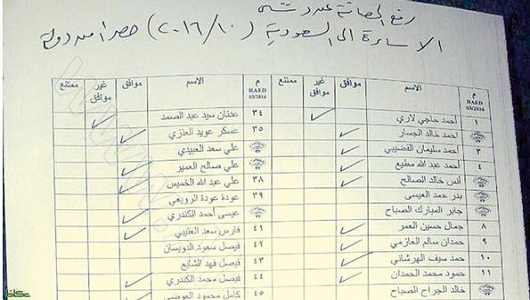 رفع الحصانة عن د دشتي
الاساءة الى السعودية (٢٠١٦/١٠) حصر امن دولة
م RAED 03/2016 الاسم موافق غير موافق ممتنع م RAED 03/2016 الاسم موافق غير موافق ممتنع
١ أحمد حاجي لاري ٣٤ عدنان سيد عبد الصمد
أحمد خالد الجسار ٣٥ عسكر عويد العنزي
٣ أحمد سليمان القضيبي علي سعد العبيدي
٤ أحمد عبد الله مطيع علي صالح العمير
أنس خالد الصالح ٣٨ علي عبد الله الخميس
بدر حمد العيسى ٣٩ عودة عودة الرويعي
جابر المبارك الصباح عيسى أحمد الكندري
٨ جمال حسين العمر ٤١ فارس سعد العتيبي
٩ حمدان سالم العازمي ٤٢ فيصل سعود الدويسان
١٠ حمد سيف الهرشاني ٤٣ فيصل فهد الشايع
١١ حمود محمد الحمدان ٤٤ فيصل محمد الكندري
خالد الجراح الصباح ٤٥ كامل محمود العوضي